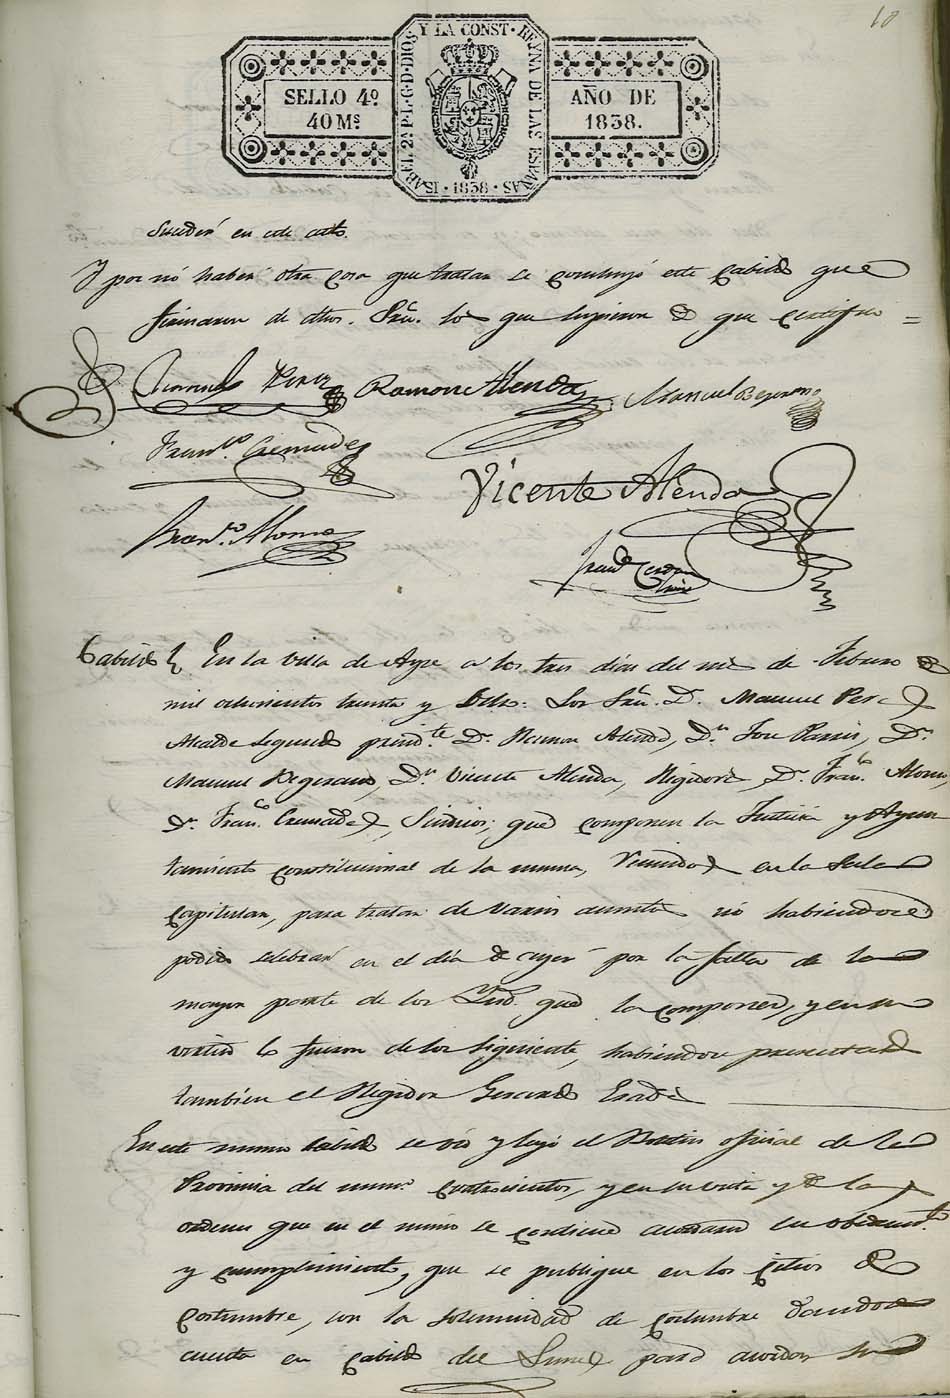 10
ISABEL 2ª P. L. G. D. DIOS Y LA CONST. REYNA DE LAS ESPAÑAS
SELLO 4º
40 Mˢ
AÑO DE
1838.
· 1838 ·
suceder en este acto.
Y por nó haber otra cosa que tratar se concluyó este Cabildo que
firmaron de dhos. Srˢ. los que supieron de que certifico =
Manuel Perez Ramon Alenda Manuel Bejerano
Franᶜᵒ. Cremades
Vicente Alenda
Franᶜᵒ. Alonso
Cabildo En la Villa de Aspe a los tres dias del mes de Febrero de
mil ochocientos treinta y ocho: Los Srˢ. D. Manuel Perez
Alcalde segundo presidᵗᵉ. Dⁿ. Ramon Alenda, Dⁿ. Jose Pavia, Dⁿ.
Manuel Bejerano, Dⁿ. Vicente Alenda, Regidores, Dⁿ. Franᶜᵒ. Alonso,
Dⁿ. Franᶜᵒ. Cremades, Sindicos; que componen la Justicia y Ayun
tamiento constitucional de la misma, reunidos en la Sala
Capitular, para tratar de varios asuntos no habiendose
podido celebrar en el dia de ayer por la falta de la
mayor parte de los Srˢ. que la componen, y en su
virtud lo fueron de los siguiente, habiendose presentado
tambien el Regidor
En este mismo Cabildo se vió y leyó el Boletin oficial de la
Provincia del numº. cuatrocientos, y en su vista y de las
ordenes que en el mismo se contiene acordaron su obedecimᵗᵒ
y cumplimiento, que se publique en los sitios de
costumbre, con la solemnidad de costumbre dandose
cuenta en Cabildo del Lunes para acordar su